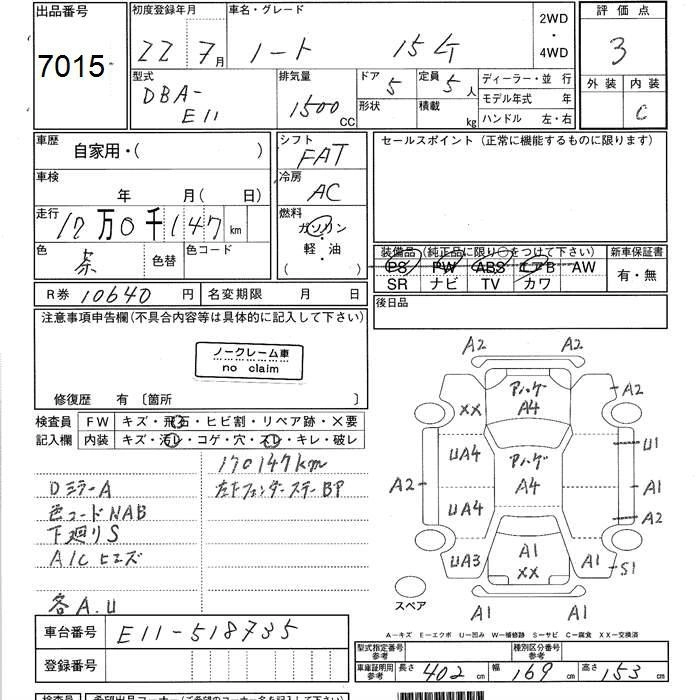 出品番号
7015
初度登録年月
22 7月
車名・グレード
ノート 15G
2WD
・
4WD
評価点
3
外装 内装
C
型式
DBA-
E11
排気量
1500 CC
ドア 5
形状
定員 5人
積載 kg
ディーラー・並 行
モデル年式 年
ハンドル 左・右
車歴
自家用・( )
車検
年 月(日)
走行
17万0千147 km
色
茶
色替
色コード
シフト
FAT
冷房
AC
燃料
ガソリン
・
軽・油
( )
セールスポイント (正常に機能するものに限ります)
装備品 (純正品に限り○をつけて下さい)
PS PW ABS エアB AW
SR ナビ TV カワ
新車保証書
有・無
R券 10640 円
名変期限 月 日
後日品
注意事項申告欄(不具合内容等は具体的に記入して下さい)
ノークレーム車
no claim
修復歴 有 〔箇所 〕
検査員
記入欄
FW キズ・飛石・ヒビ割・リペア跡・X要
内装 キズ・汚レ・コゲ・穴・スレ・キレ・破レ
170147km
Dミラー A
左Fフェンダーステー BP
色コード NAB
下廻り S
A/C ヒエズ
各 A.U
車台番号 E11-518735
登録番号
A2 A2
XX
アハゲ
A4
A2
UA4
アハゲ
A4
U1
A2
UA4
A1
A2
UA3
A1
XX
A1
S1
A1 A1
スペア
A-キズ E-エクボ U-凹み W-補修跡 S-サビ C-腐食 XX-交換済
型式指定番号
参考
種別区分番号
参考
車庫証明用
参考
長さ 402 cm 幅 169 cm 高さ 153 cm
検査員